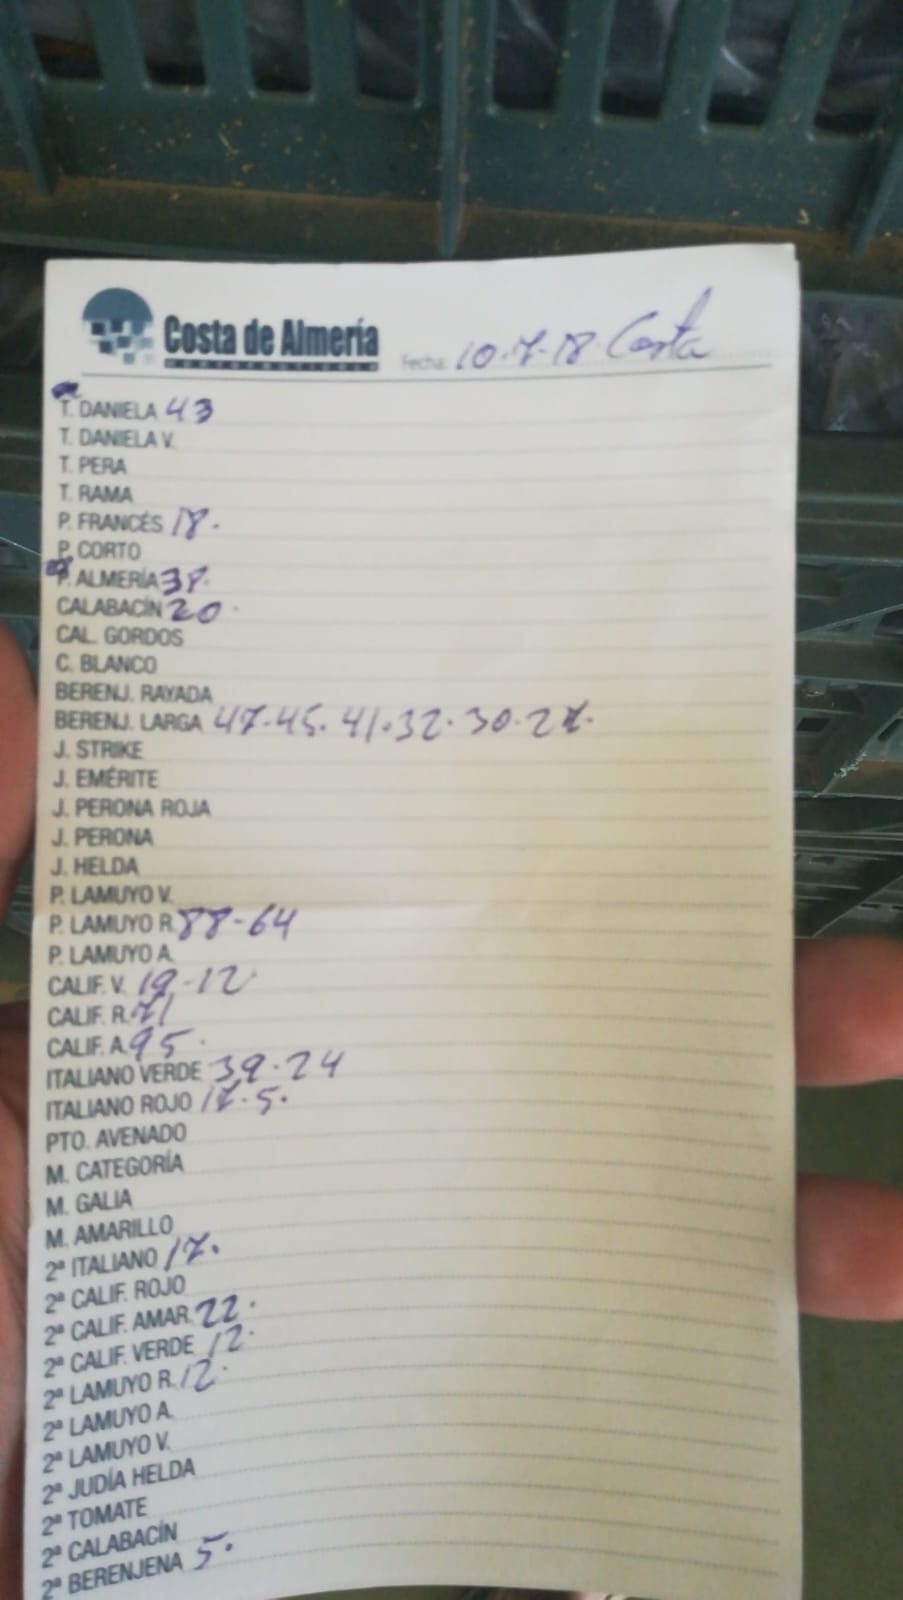 Costa de Almería
Fecha: 10-7-18 Costa
T. DANIELA 43
T. DANIELA V.
T. PERA
T. RAMA
P. FRANCÉS 18.
P. CORTO
P. ALMERÍA 38.
CALABACÍN 20.
CAL. GORDOS
C. BLANCO
BERENJ. RAYADA
BERENJ. LARGA 47-45. 41.32. 30.27.
J. STRIKE
J. EMÉRITE
J. PERONA ROJA
J. PERONA
J. HELDA
P. LAMUYO V.
P. LAMUYO R. 88-64
P. LAMUYO A.
CALIF. V. 19-12
CALIF. R. 71
CALIF. A. 95.
ITALIANO VERDE 39.24
ITALIANO ROJO 17.5.
PTO. AVENADO
M. CATEGORÍA
M. GALIA
M. AMARILLO
2ª ITALIANO 17.
2ª CALIF. ROJO
2ª CALIF. AMAR. 22.
2ª CALIF. VERDE 12.
2ª LAMUYO R. 12.
2ª LAMUYO A.
2ª LAMUYO V.
2ª JUDÍA HELDA
2ª TOMATE
2ª CALABACÍN
2ª BERENJENA 5.